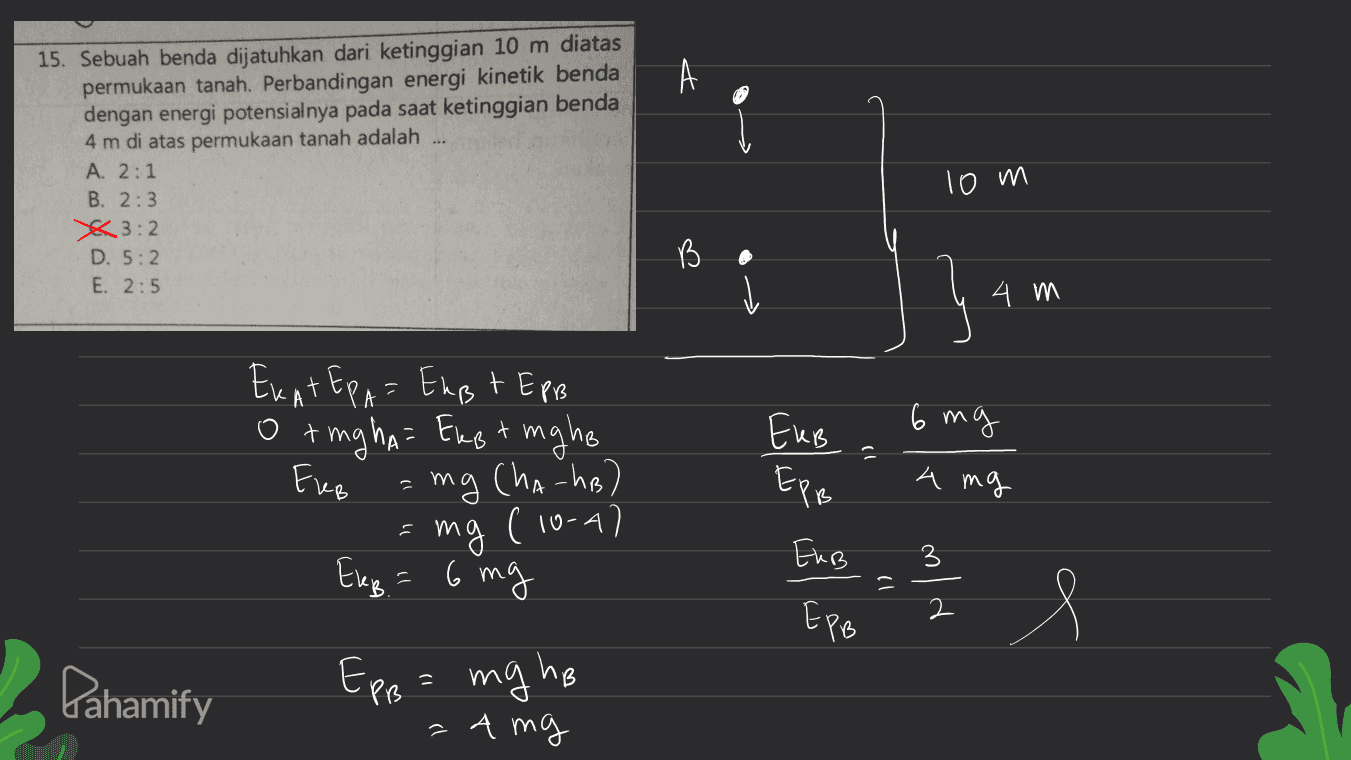 15. Sebuah benda dijatuhkan dari ketinggian 10 m diatas
permukaan tanah. Perbandingan energi kinetik benda
dengan energi potensialnya pada saat ketinggian benda
4 m di atas permukaan tanah adalah ...
A. 2:1
B. 2:3
C. 3:2
D. 5:2
E. 2:5
A
10 m
B
4 m
EkA + EPA = EkB + EPB
0 + mghA = EkB + mghB
EkB = mg (hA - hB)
= mg (10-4)
EkB = 6 mg
EPB = mg hB
= 4 mg
EkB = 6 mg
EPB 4 mg
EkB = 3
EPB 2
Pahamify